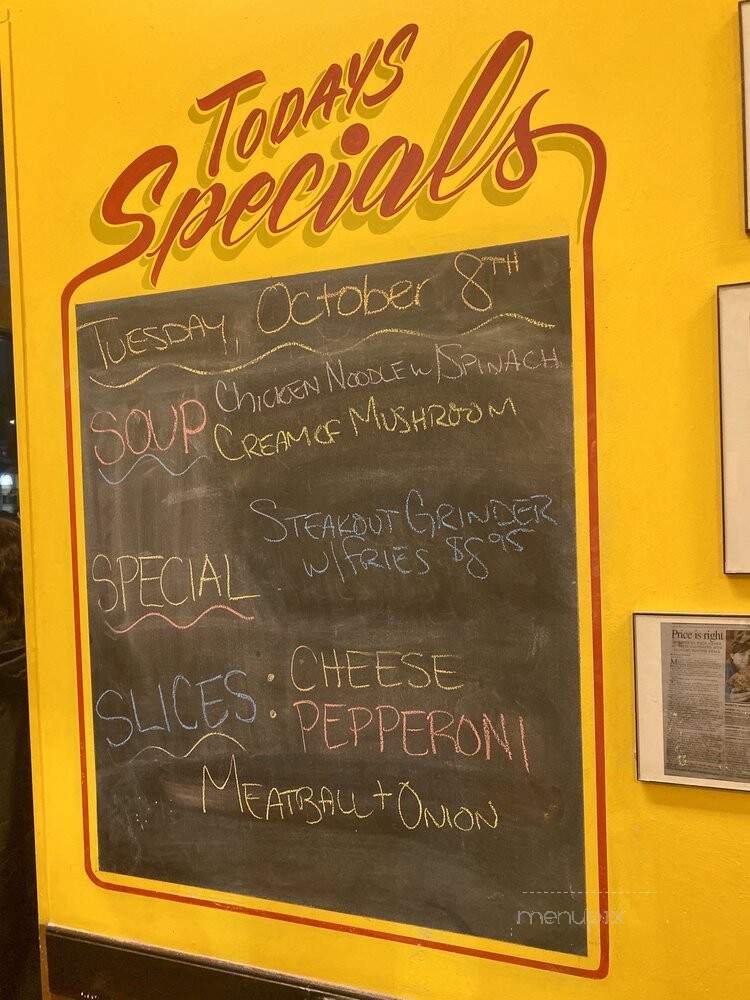 TODAYS
Specials
TUESDAY, OCTOBER 8TH
SOUP CHICKEN NOODLE W/SPINACH
CREAM OF MUSHROOM
STEAKOUT GRINDER
W/FRIES $8.95
SPECIAL
SLICES: CHEESE
PEPPERONI
MEATBALL + ONION
Price is right
menupix